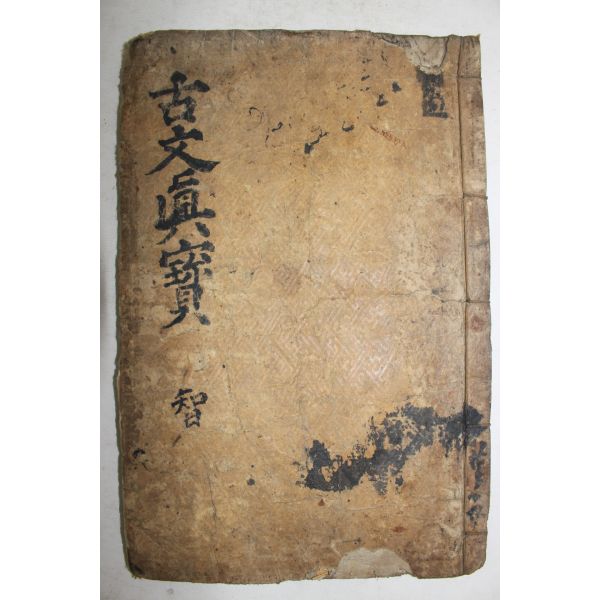 古文眞寶
智